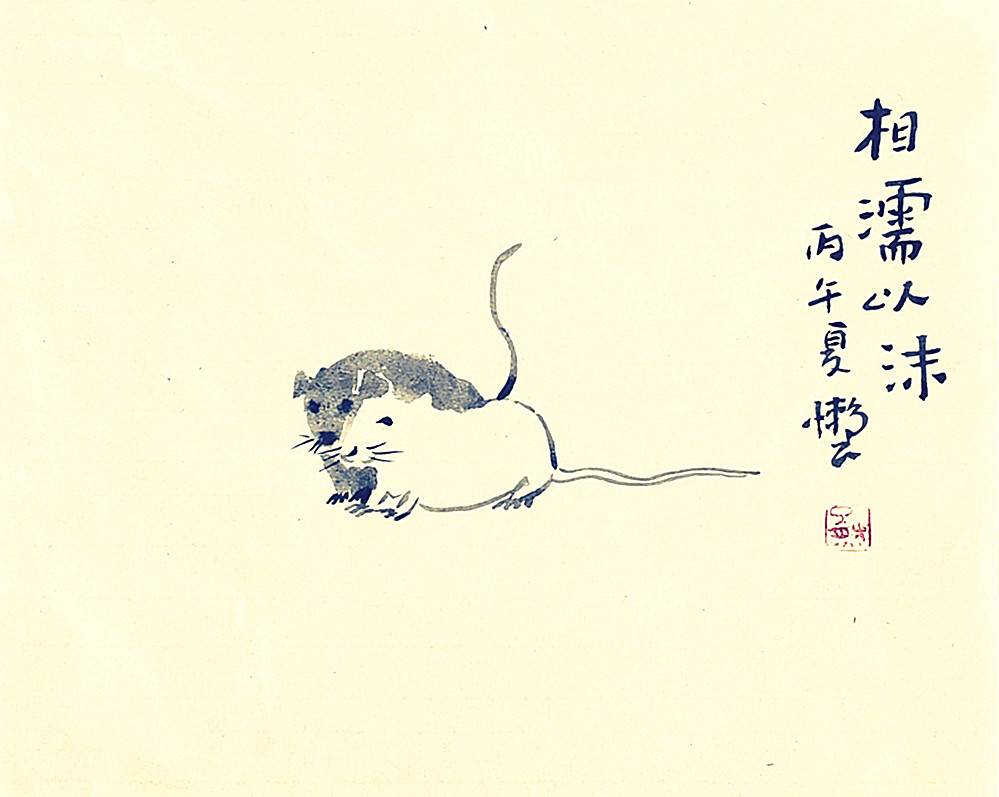 相濡以沫
丙午夏